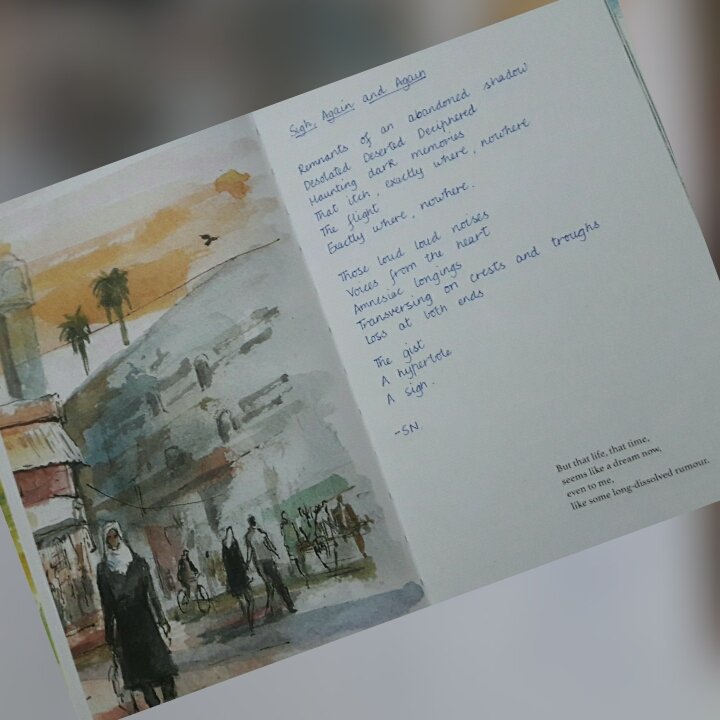 Sigh, Again and Again
Remnants of an abandoned shadow
Desolated Deserted Deciphered
Haunting dark memories
That itch, exactly where, nowhere
The flight
Exactly where, nowhere.
Those loud loud noises
Voices from the heart
Amnesiac longings
Transversing on crests and troughs
Loss at both ends
The gist
A hyperbole
A sigh.
-SN.
But that life, that time,
seems like a dream now,
even to me,
like some long-dissolved rumour.